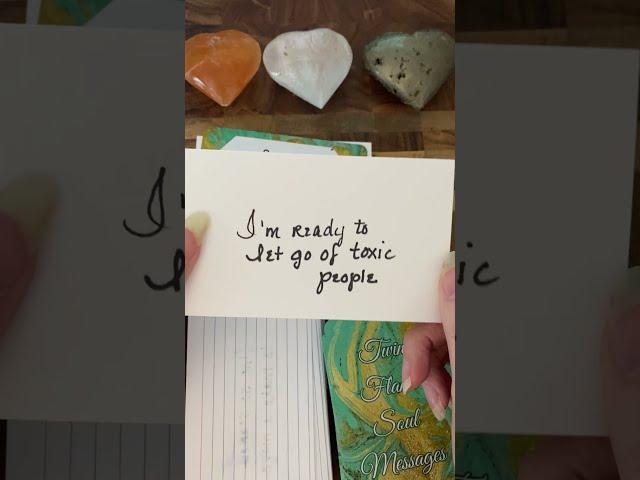 I'm ready to
let go of toxic
people
Twin
Flame
Soul
Messages